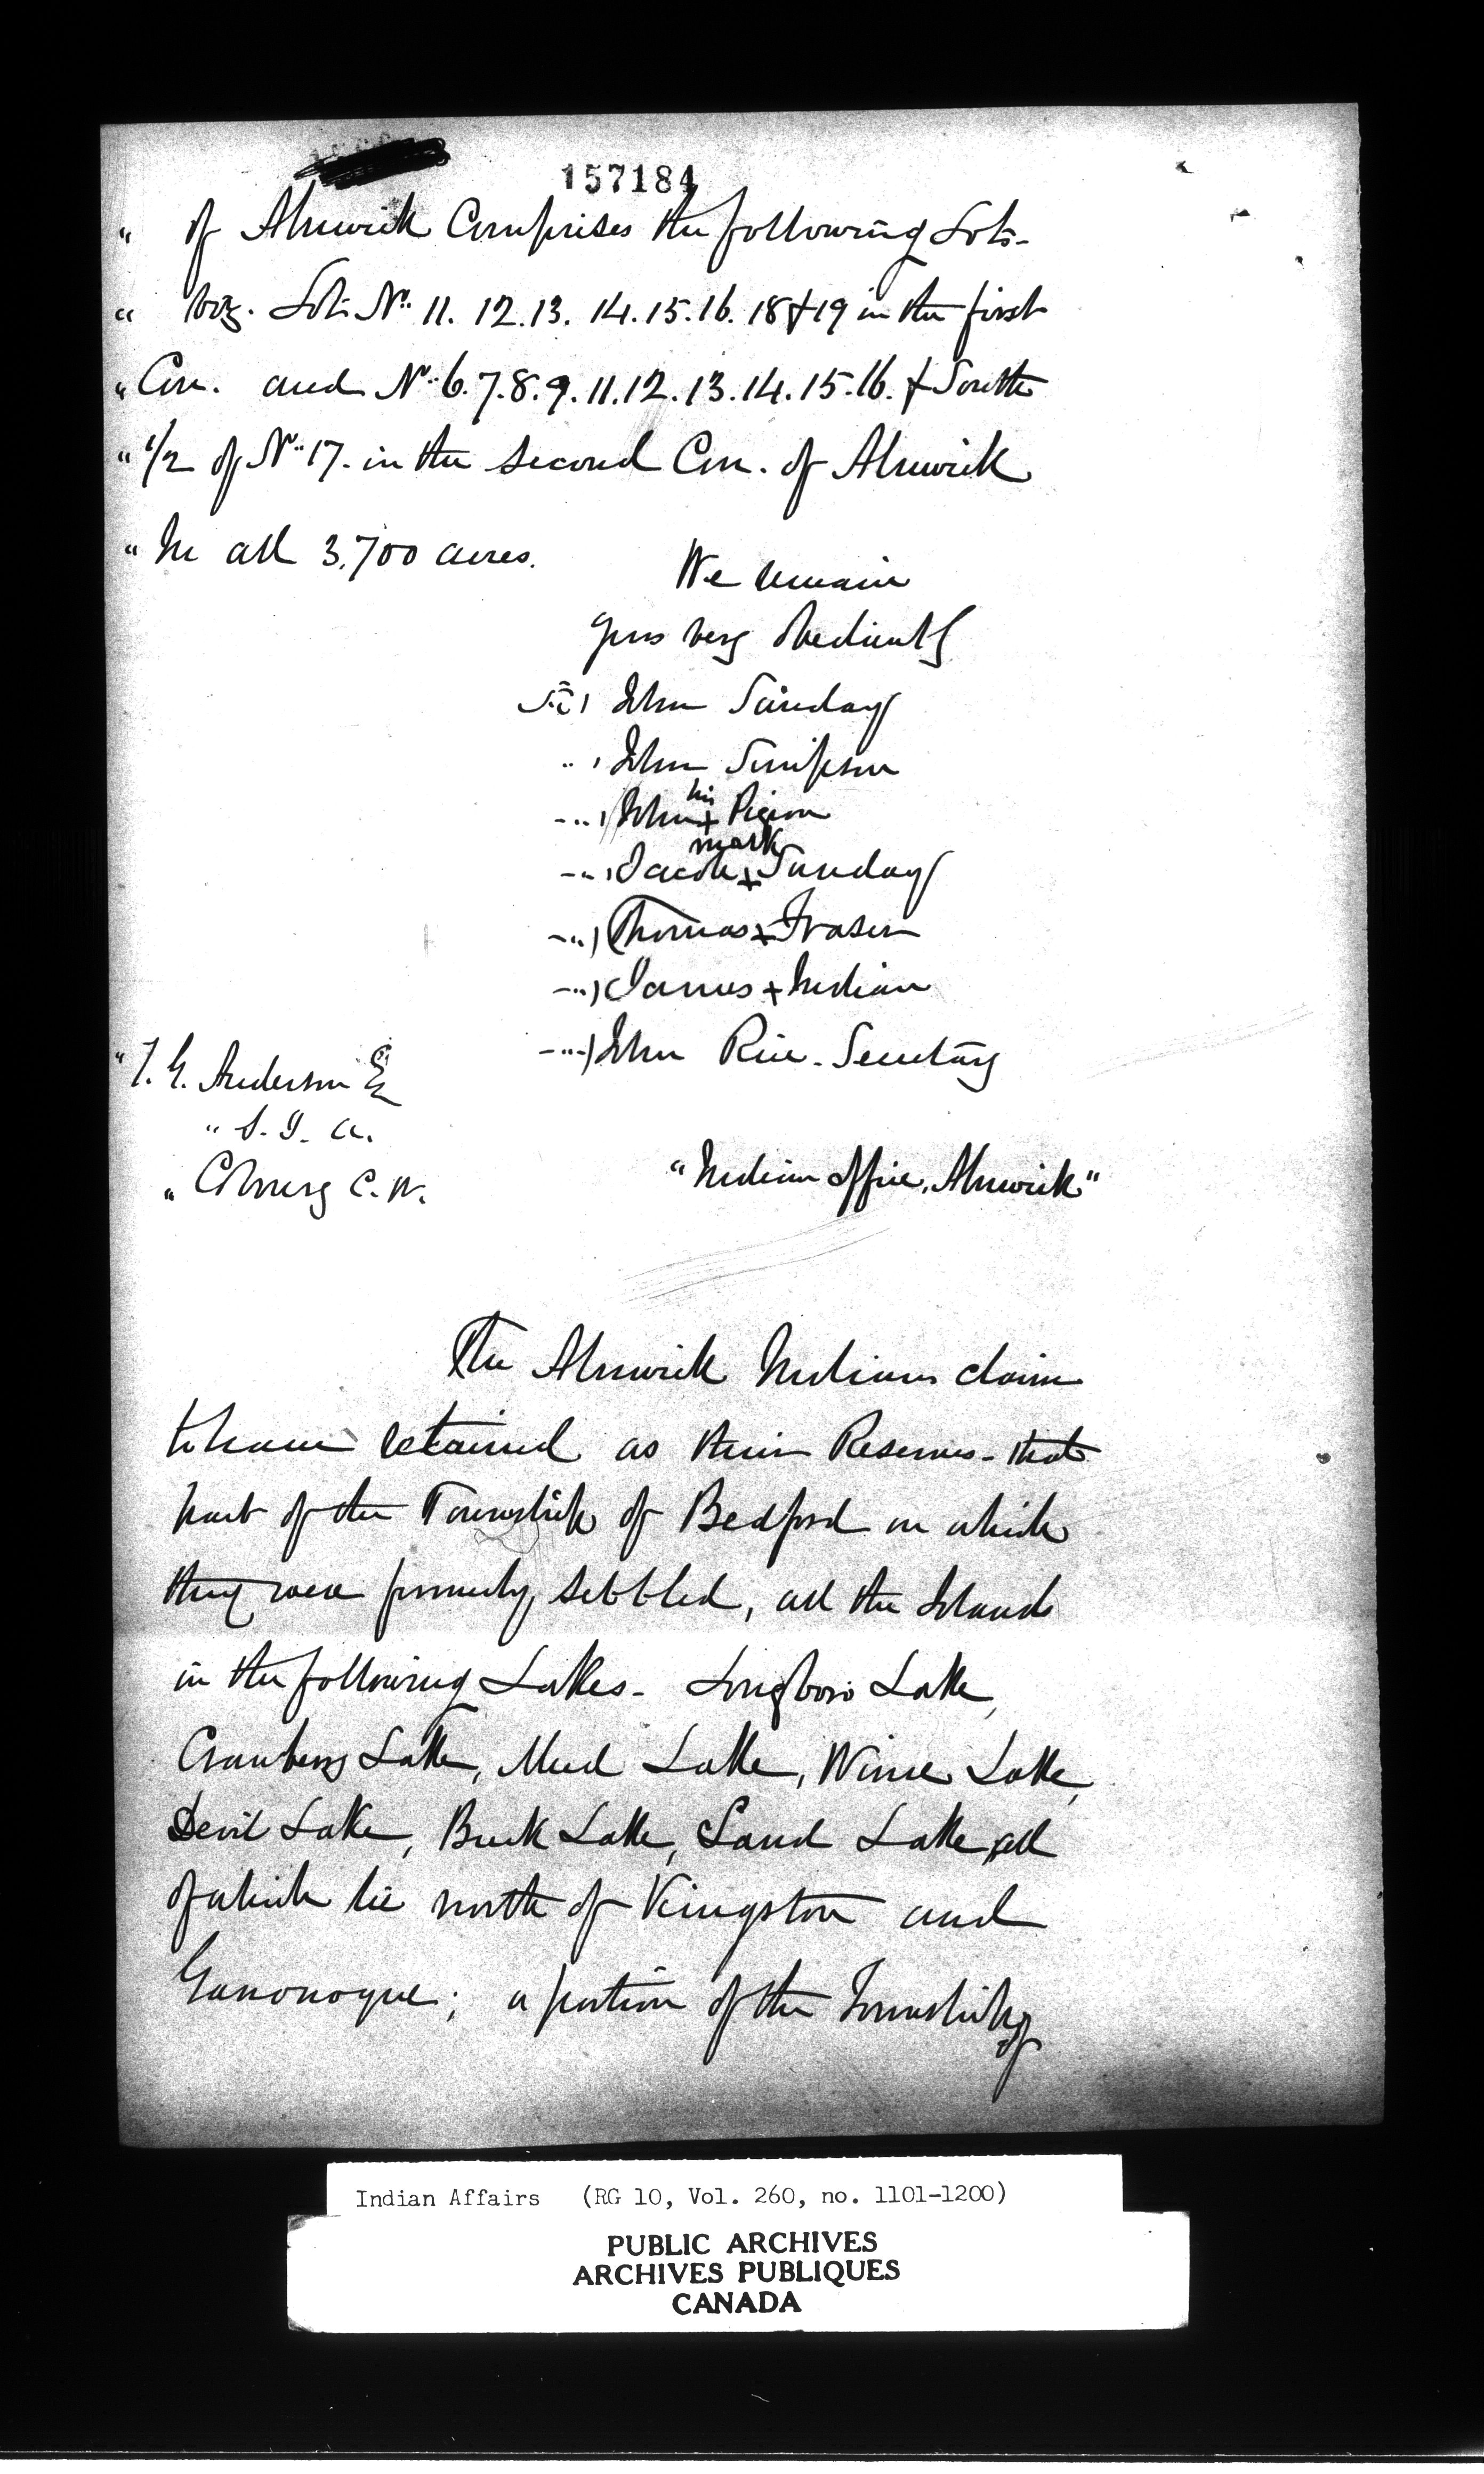 157184
" of Alnwick Comprises the following Lots-
" viz. Lots No. 11. 12. 13. 14. 15. 16. 18 & 19 in the first
" Con. and No. 6. 7. 8. 9. 11. 12. 13. 14. 15. 16. & South
" 1/2 of No. 17. in the second Con. of Alnwick
" In all 3,700 acres.
We remain
yours very obediently
John Sunday
John Simpson
his
John + Pigeon
mark
Jacob + Sunday
Thomas + Fraser
James + Indian
John Rice - Secretary
" T. G. Anderson Esq
" S. I. A.
" Cobourg C. W.
"Indian Office, Alnwick"
The Alnwick Indians claim
to have retained as their Reserves - that
part of the Township of Bedford on which
they were formerly settled, all the Islands
in the following Lakes - Longboro Lake,
Cranberry Lake, Mud Lake, Lake,
Devil Lake, Buck Lake, Sand Lake, all
of which lie north of Kingston and
Gananoque; a portion of the Township of
Indian Affairs (RG 10, Vol. 260, no. 1101-1200)
PUBLIC ARCHIVES
ARCHIVES PUBLIQUES
CANADA